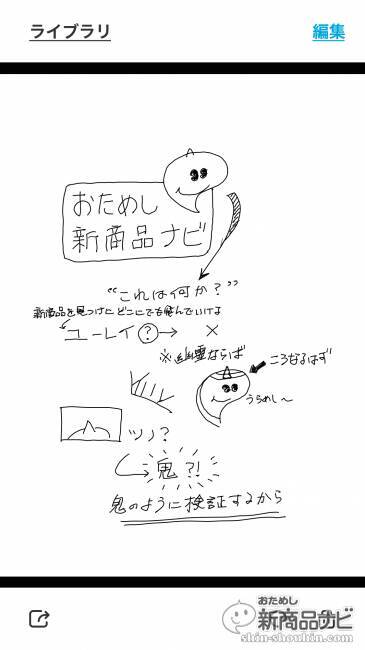 ライブラリ 編集
おためし
新商品ナビ
"これは何か？"
新商品を見つけに どこにでも飛んでいけよ
ユーレイ ? → ×
※幽霊ならば
ころなるはず
うらめし〜
ツノ？
鬼?!
鬼のように検証するから
おためし
新商品ナビ
shin-shouhin.com